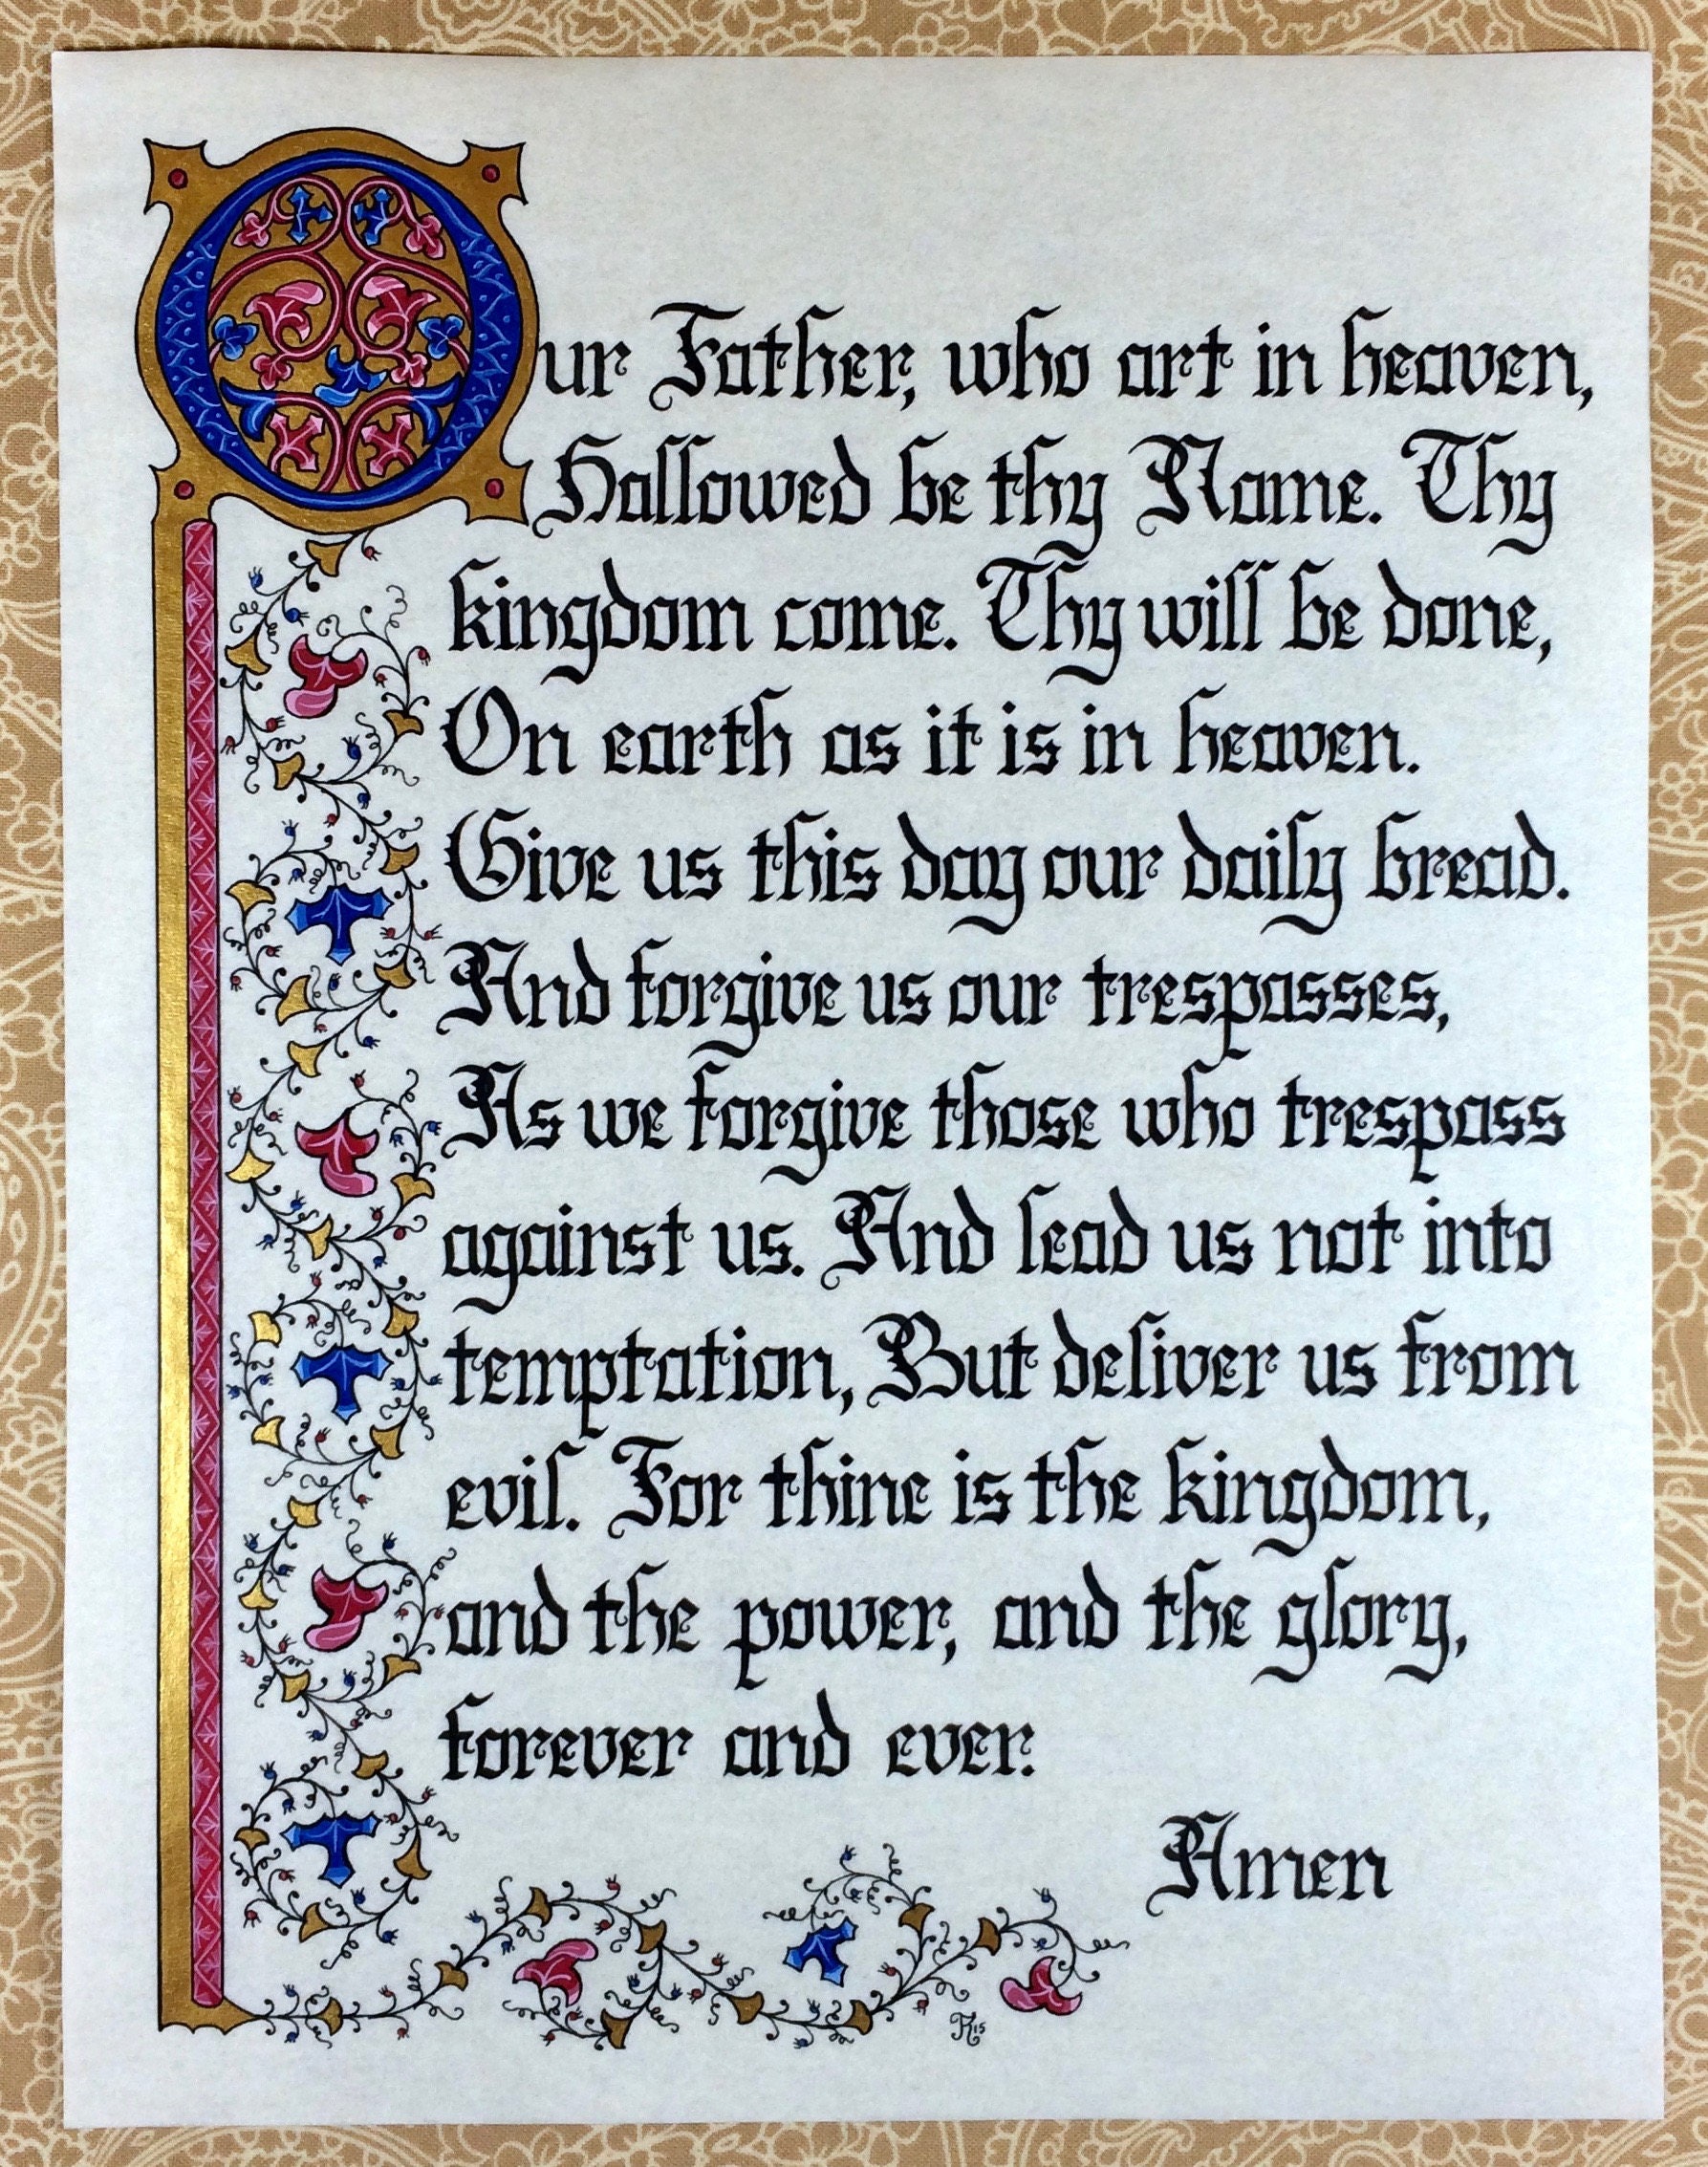 Our Father, who art in heaven,
Hallowed be thy Name. Thy
kingdom come. Thy will be done,
On earth as it is in heaven.
Give us this day our daily bread.
And forgive us our trespasses,
As we forgive those who trespass
against us. And lead us not into
temptation, But deliver us from
evil. For thine is the kingdom,
and the power, and the glory,
forever and ever.
Amen